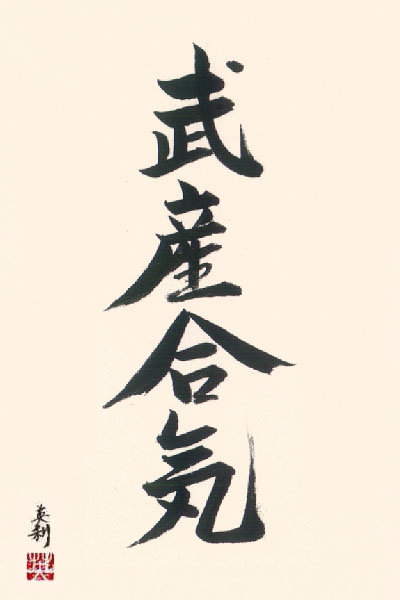 武産合気
英利